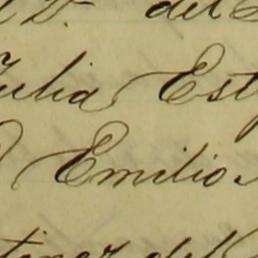 D. del
Julia Est
Emilio
tinez del